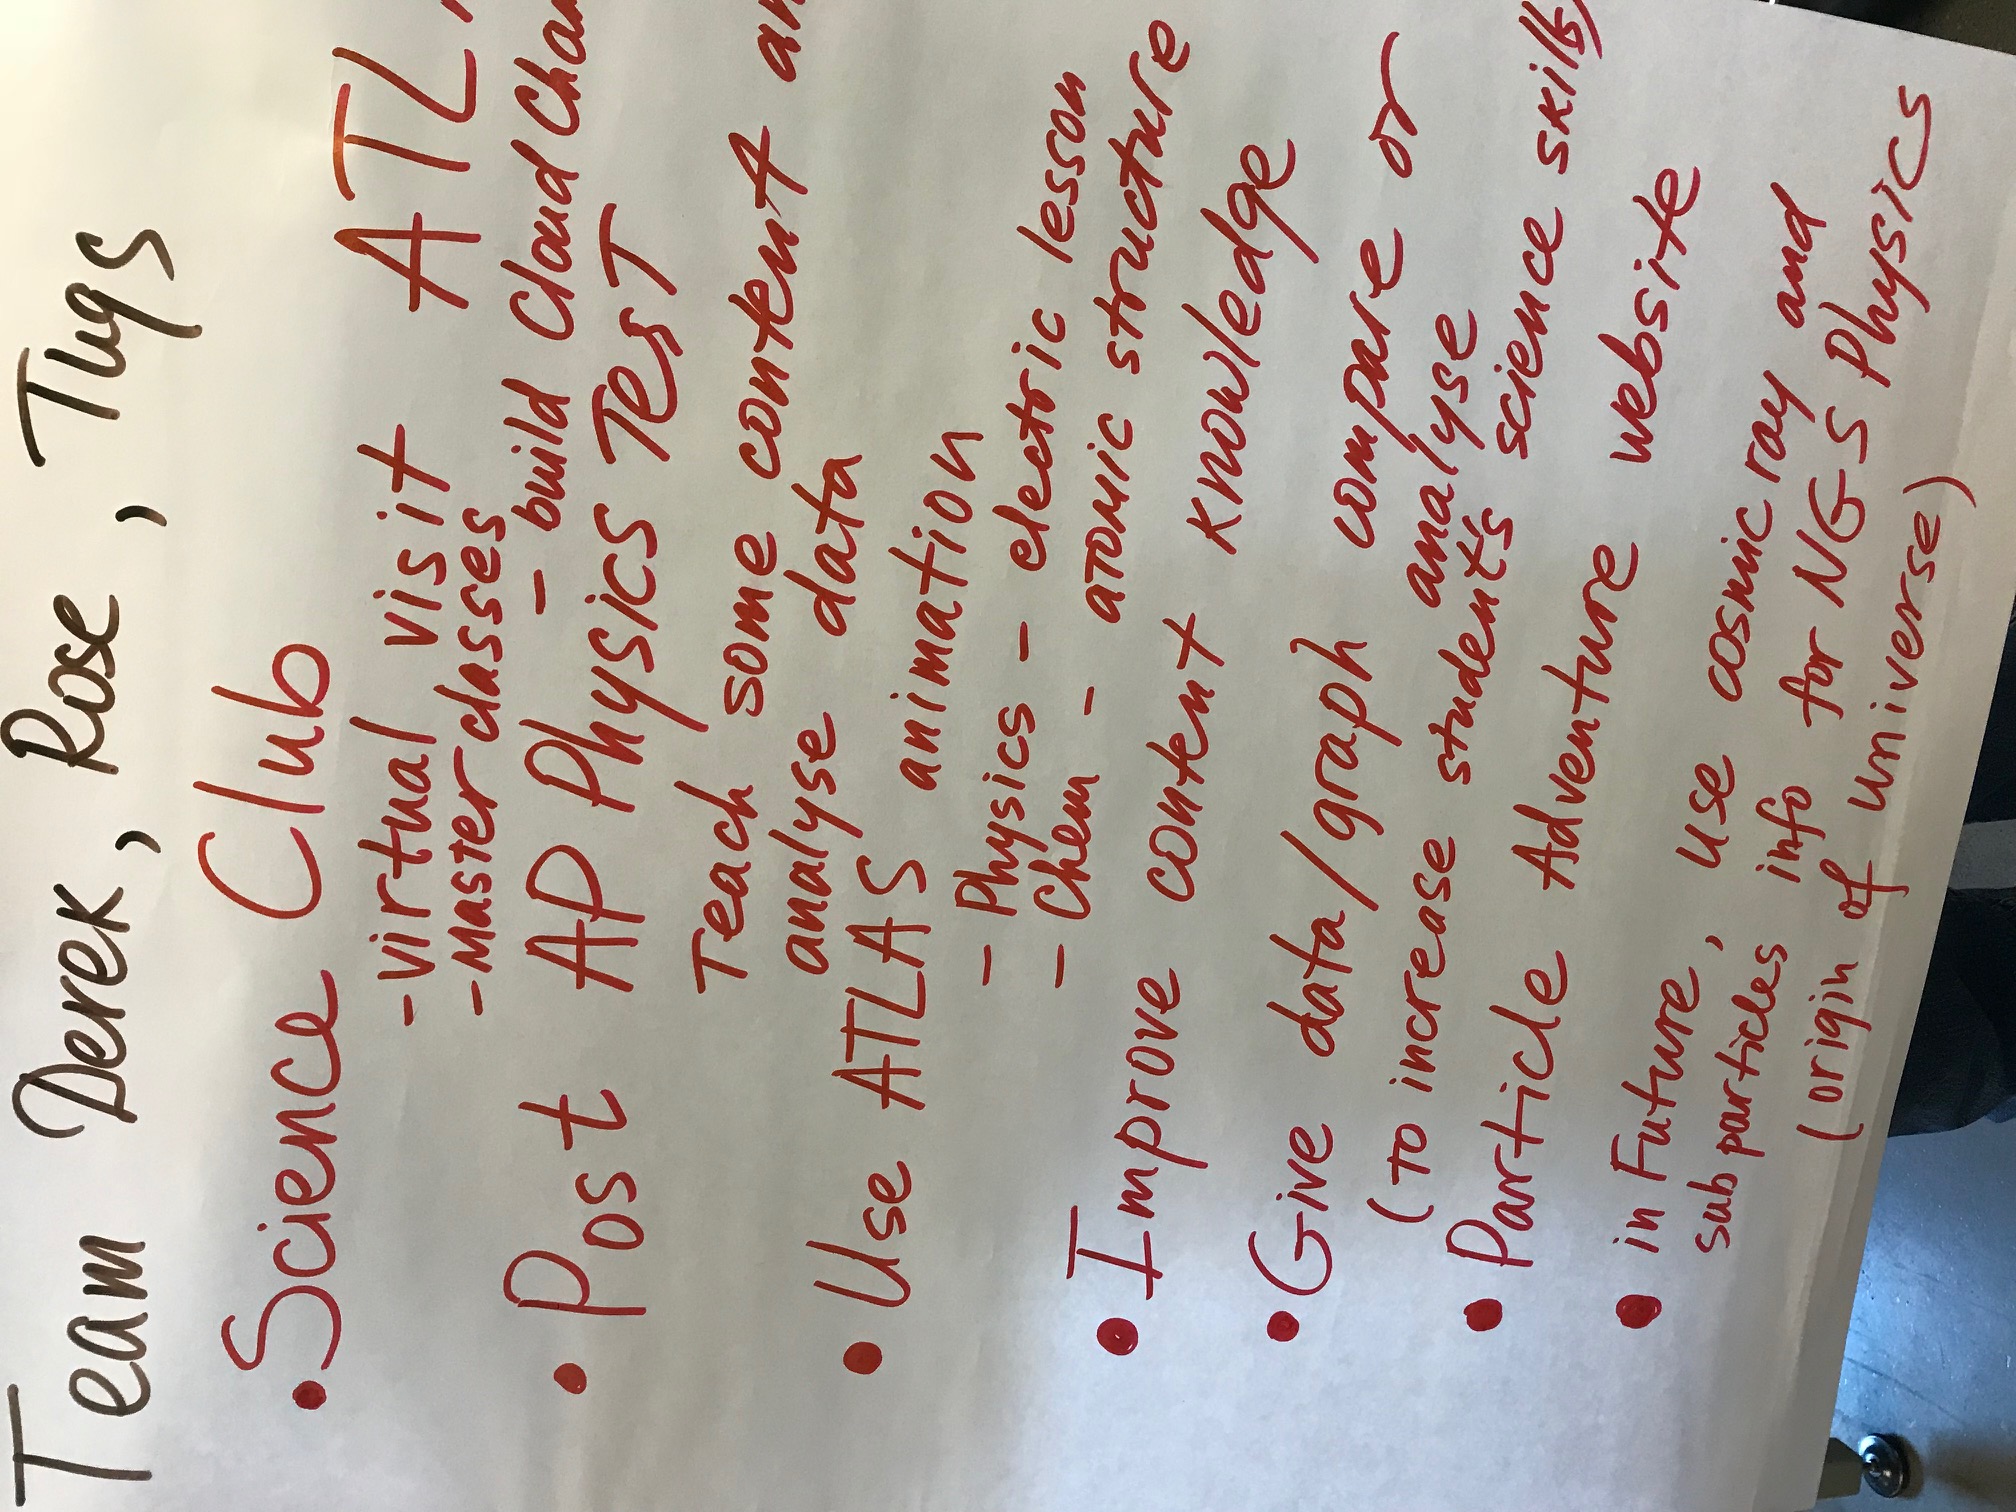 Team Derek, Rose, Tugs
• Science Club
- virtual visit ATL
- Master classes
- build Cloud Cha
• Post AP Physics Test
Teach some content an
analyse data
• Use ATLAS animation
- Physics - electric lesson
- Chem - atomic structure
• Improve content knowledge
• Give data/graph compare or
analyse
(to increase student's science skills)
• Particle Adventure website
• in Future, use cosmic ray and
sub particles info for NGS Physics
(origin of universe)